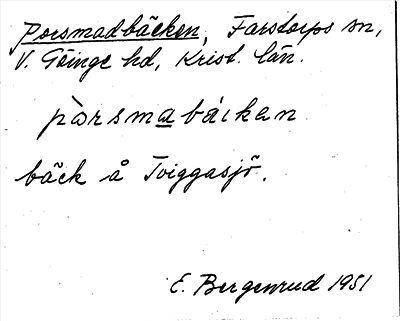 Porsmadbäcken, Farstorps sn,
V. Göinge hd, Krist. län.
pàrsmabáckan
bäck å Tviggasjö.
E. Bergenrud 1951